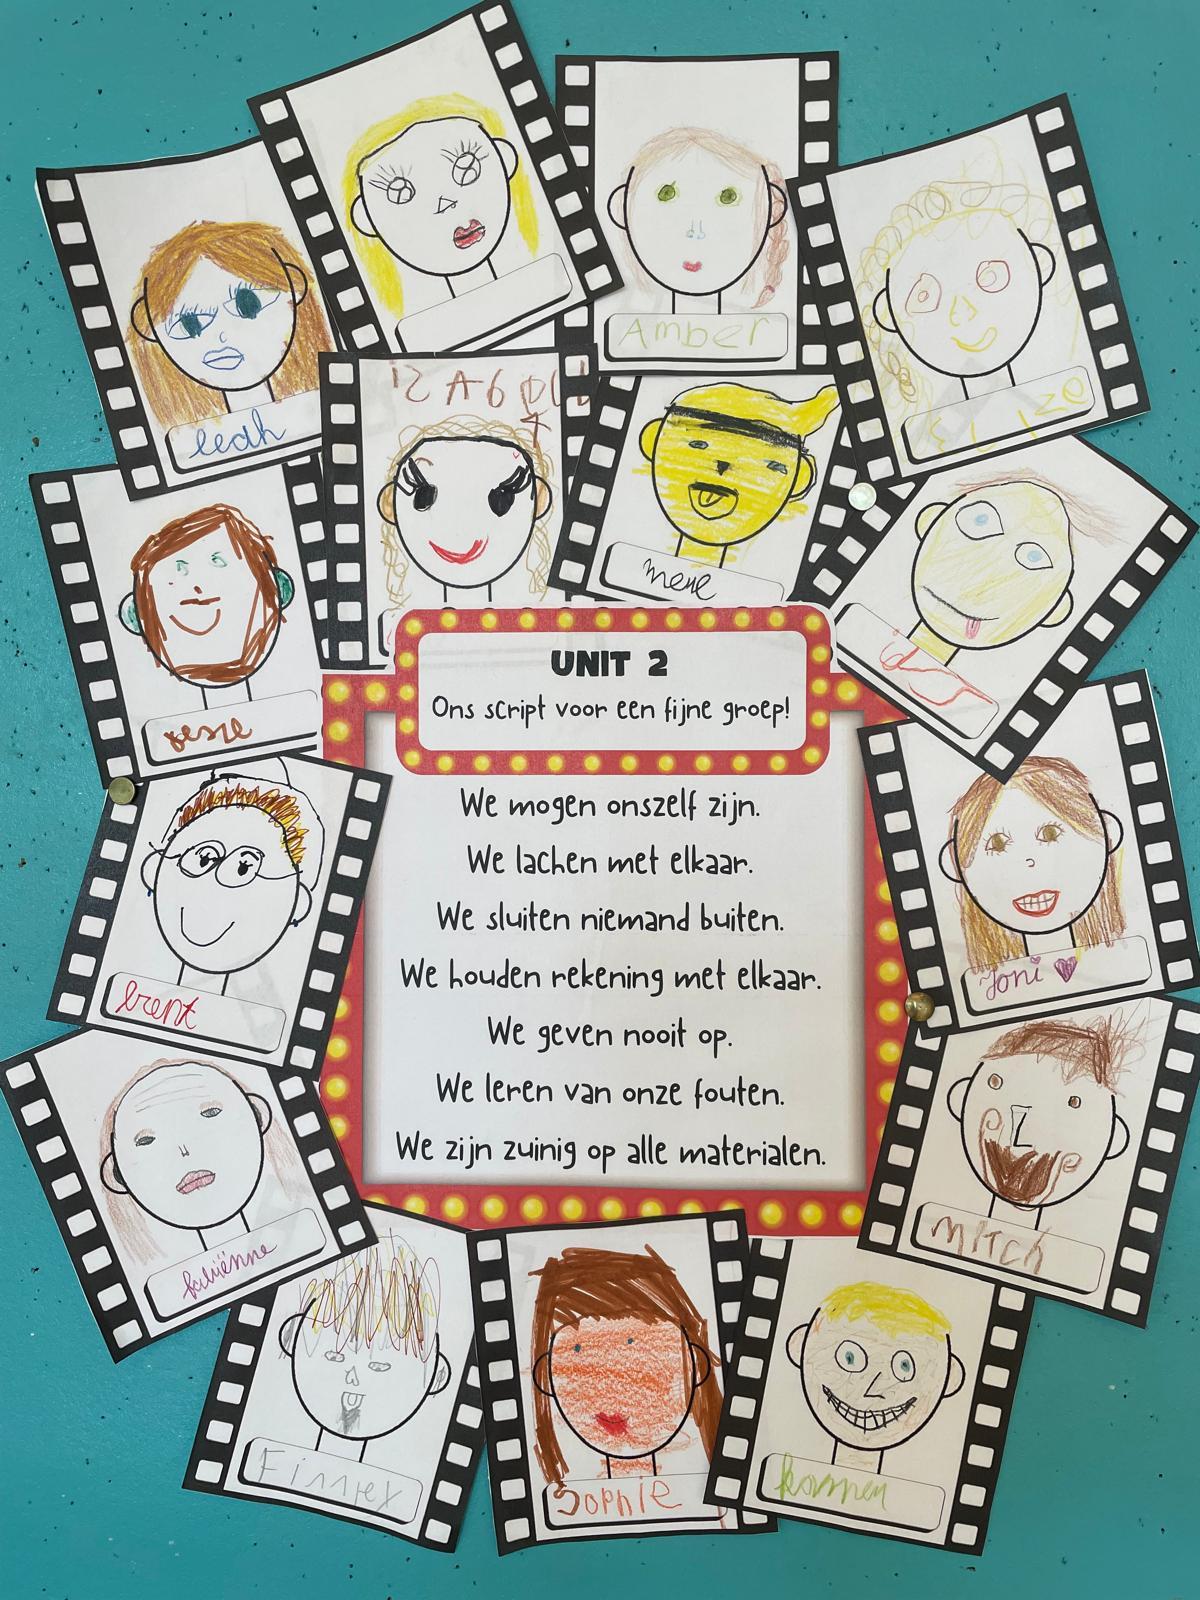 Amber
leah
IZABOLL
Mene
Elize
jesse
UNIT 2
Ons script voor een fijne groep!
We mogen onszelf zijn.
We lachen met elkaar.
We sluiten niemand buiten.
We houden rekening met elkaar.
We geven nooit op.
We leren van onze fouten.
We zijn zuinig op alle materialen.
Joni
brent
Mitch
Sophie